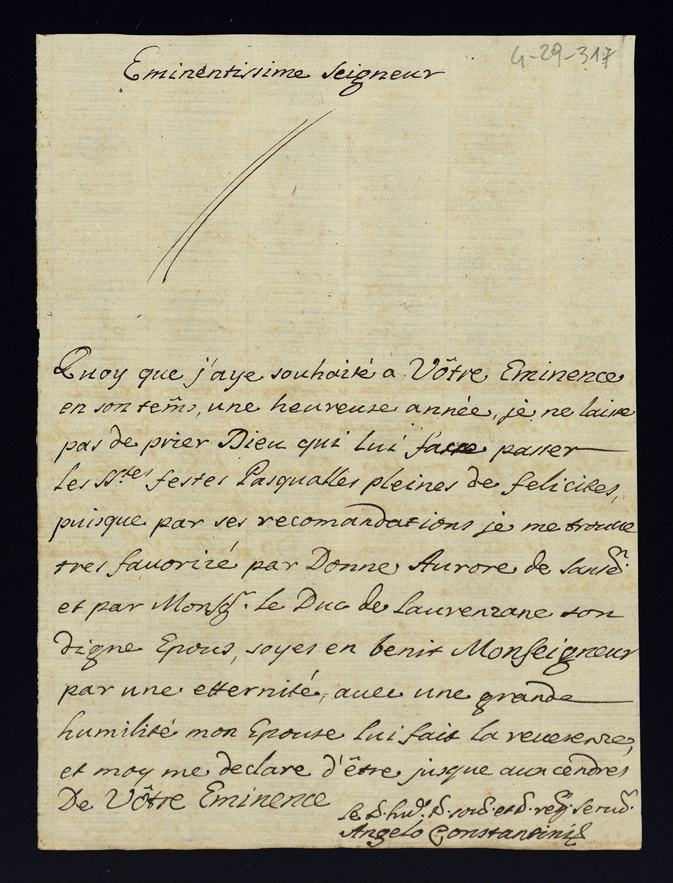 4-29-317
Eminentissime seigneur
Quoy que j'aye souhaité a Vôtre Eminence
en son tem̃s, une heureuse année, je ne laisse
pas de prier Dieu qui lui fasse passer
les Stes festes Pasqualles pleines de felicites,
puisque par ses recomandations je me trouve
tres favorizé par Donne Aurore de
et par Monsgr. le Duc de Laurenzane son
digne Epous, soyes en benit Monseigneur
par une etternité, avec une grande
humilité mon Epouse lui fait la reverenze,
et moy me declare d'être jusque aux cendres
De Vôtre Eminence
le
Angelo Constantini